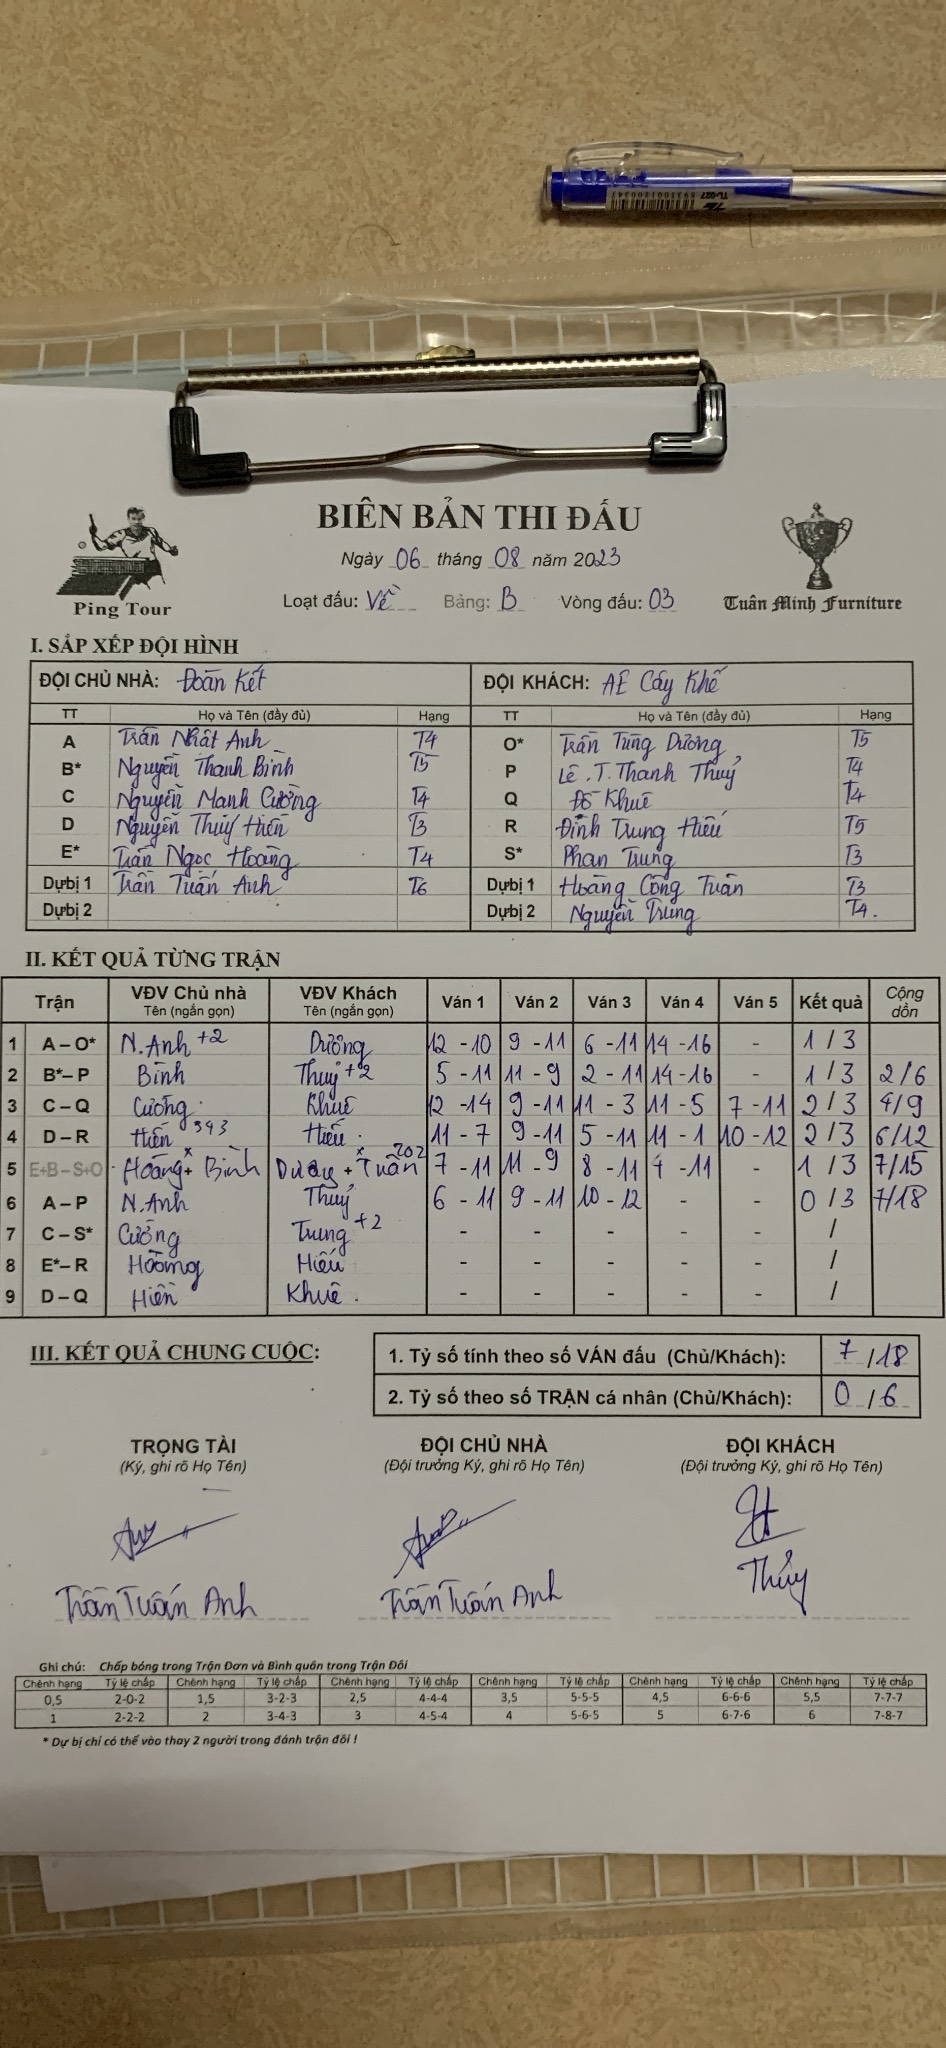 TL-027
8933001800343
BIÊN BẢN THI ĐẤU
Ngày 06 tháng 08 năm 2023
Ping Tour
Loạt đấu: Về Bảng: B Vòng đấu: 03
Tuân Minh Furniture
I. SẮP XẾP ĐỘI HÌNH
ĐỘI CHỦ NHÀ: Đoàn Kết ĐỘI KHÁCH: AE Cây Khế
TT Họ và Tên (đầy đủ) Hạng TT Họ và Tên (đầy đủ) Hạng
A Trần Nhật Anh T4 O* Trần Tùng Dương T5
B* Nguyễn Thanh Bình T5 P Lê .T. Thanh Thuỷ T4
C Nguyễn Mạnh Cường T4 Q Đỗ Khuê T4
D Nguyễn Thuý Hiền T3 R Đinh Trung Hiếu T5
E* Trần Ngọc Hoàng T4 S* Phan Trung T3
Dự bị 1 Trần Tuấn Anh T6 Dự bị 1 Hoàng Công Tuấn T3
Dự bị 2 Dự bị 2 Nguyễn Trung T4.
II. KẾT QUẢ TỪNG TRẬN
Trận VĐV Chủ nhà Tên (ngắn gọn) VĐV Khách Tên (ngắn gọn) Ván 1 Ván 2 Ván 3 Ván 4 Ván 5 Kết quả Cộng dồn
1 A – O* N.Anh +2 Dương 12 - 10 9 - 11 6 - 11 14 - 16 - 1 / 3
2 B* – P Bình Thuỷ +2 5 - 11 11 - 9 2 - 11 14 - 16 - 1 / 3 2/6
3 C – Q Cường Khuê 12 - 14 9 - 11 11 - 3 11 - 5 7 - 11 2 / 3 4/9
4 D – R Hiền 343 Hiếu 11 - 7 9 - 11 5 - 11 11 - 1 10 - 12 2 / 3 6/12
5 E+B – S+O Hoàng + Bình Dương + Tuấn 202 7 - 11 11 - 9 8 - 11 4 - 11 - 1 / 3 7/15
6 A – P N.Anh Thuỷ 6 - 11 9 - 11 10 - 12 - - 0 / 3 7/18
7 C – S* Cường Trung +2 - - - - - /
8 E* – R Hoàng Hiếu - - - - - /
9 D – Q Hiền Khuê . - - - - - /
III. KẾT QUẢ CHUNG CUỘC:
1. Tỷ số tính theo số VÁN đấu (Chủ/Khách): 7 / 18
2. Tỷ số theo số TRẬN cá nhân (Chủ/Khách): 0 / 6
TRỌNG TÀI ĐỘI CHỦ NHÀ ĐỘI KHÁCH
(Ký, ghi rõ Họ Tên) (Đội trưởng Ký, ghi rõ Họ Tên) (Đội trưởng Ký, ghi rõ Họ Tên)
Trần Tuấn Anh Trần Tuấn Anh Thủy
Ghi chú: Chấp bóng trong Trận Đơn và Bình quân trong Trận Đôi
Chênh hạng Tỷ lệ chấp Chênh hạng Tỷ lệ chấp Chênh hạng Tỷ lệ chấp Chênh hạng Tỷ lệ chấp Chênh hạng Tỷ lệ chấp Chênh hạng Tỷ lệ chấp
0,5 2-0-2 1,5 3-2-3 2,5 4-4-4 3,5 5-5-5 4,5 6-6-6 5,5 7-7-7
1 2-2-2 2 3-4-3 3 4-5-4 4 5-6-5 5 6-7-6 6 7-8-7
* Dự bị chỉ có thể vào thay 2 người trong đánh trận đôi !